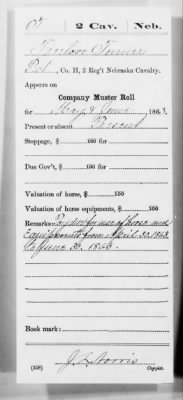 T 2 Cav. Neb.
Turner
Pvt, Co. H, 2 Reg't Nebraska Cavalry.
Appears on
Company Muster Roll
for May & June, 186
Present or absent Present
Stoppage, $ 100 for
Due Gov't, $ 100 for
Valuation of horse, $ 100
Valuation of horse equipments, $ 100
Remarks: Pay due for use of horse and
Equipments from April 30, 1863
to June 30, 1863.
Book mark:
J. L. Norris
(358) Copyist.